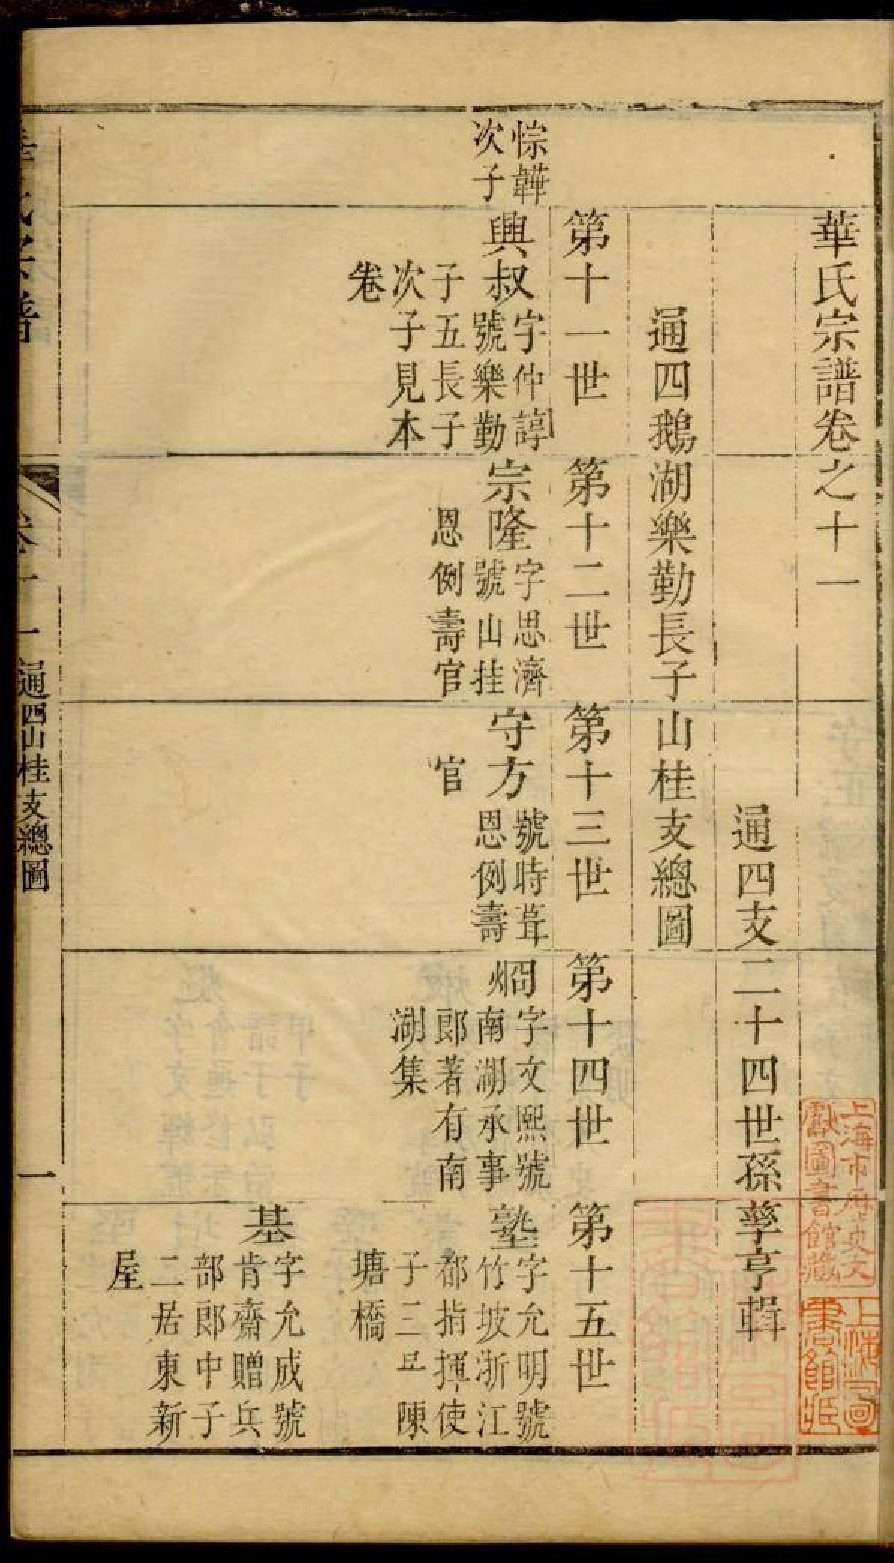 華氏宗譜卷之十一
通四支二十四世孫孳亨輯
通四鵝湖樂勤長子山桂支總圖
第十一世
第十二世
第十三世
第十四世
第十五世
悰韡
次子
興叔
字仲諄
號樂勤
子五長子
次子見本
卷
宗隆
字思濟
號山挂
恩例壽官
守方
號時葺
恩例壽
官
冏州
字文熙號
南湖承事
郎著有南
湖集
塾
字允明號
竹坡浙江
都指揮使
子三 陳
塘橋
基
字允成號
肯齋贈兵
部郎中子
二居東新
屋
華氏宗譜
卷十一
通四山桂支總圖
一
上海市歷史文
獻圖書館藏
上海圖
書館藏